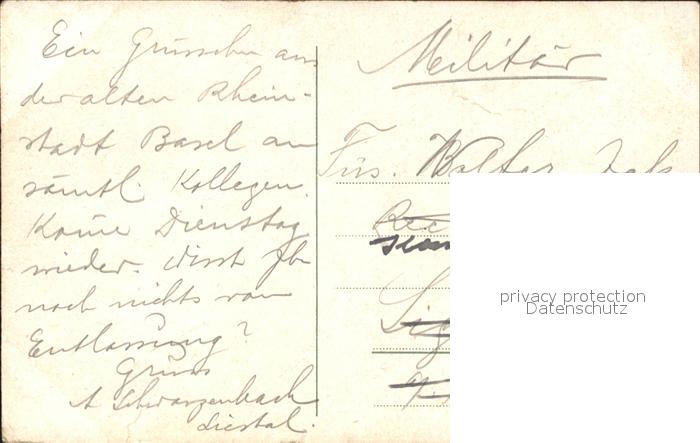 Ein Grüsschen aus
der alten Rhein-
stadt Basel an
sämtl. Kollegen.
Komme Dienstag
wieder. Wisst Ihr
noch nichts von
Entlassung?
Gruss
A Schwarzenbach
Liestal.
Militär
Füs. Walter
privacy protection
Datenschutz